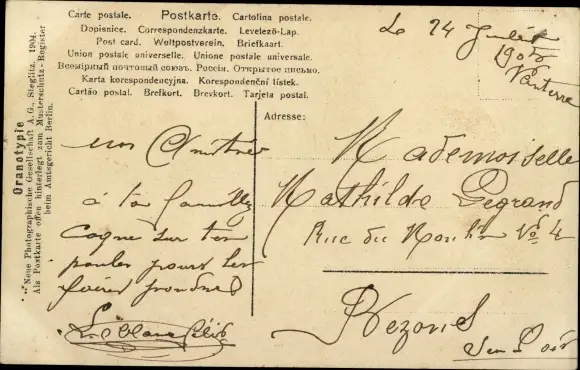 Carte postale. Postkarte. Cartolina postale.
Dopisnice. Correspondenzkarte. Levelező-Lap.
Post card. Weltpostverein. Briefkaart.
Union postale universelle. Unione postale universale.
Всемірный почтовый союзъ. Россія. Открытое письмо.
Karta korespondencyjna. Korespondenční lístek.
Cartão postal. Brefkort. Brevkort. Tarjeta postal.
Oranotypie
Neue Photographische Gesellschaft A.G., Steglitz, 1904.
Als Postkarte offen hinterlegt zum Musterschutz-Register
beim Amtsgericht Berlin.
Le 24
190
Nanterre
à ta
sur tes
poules pour les
faire pondre
Adresse:
Mademoiselle
Mathilde Legrand
Rue du Moulin No 4
Bezons